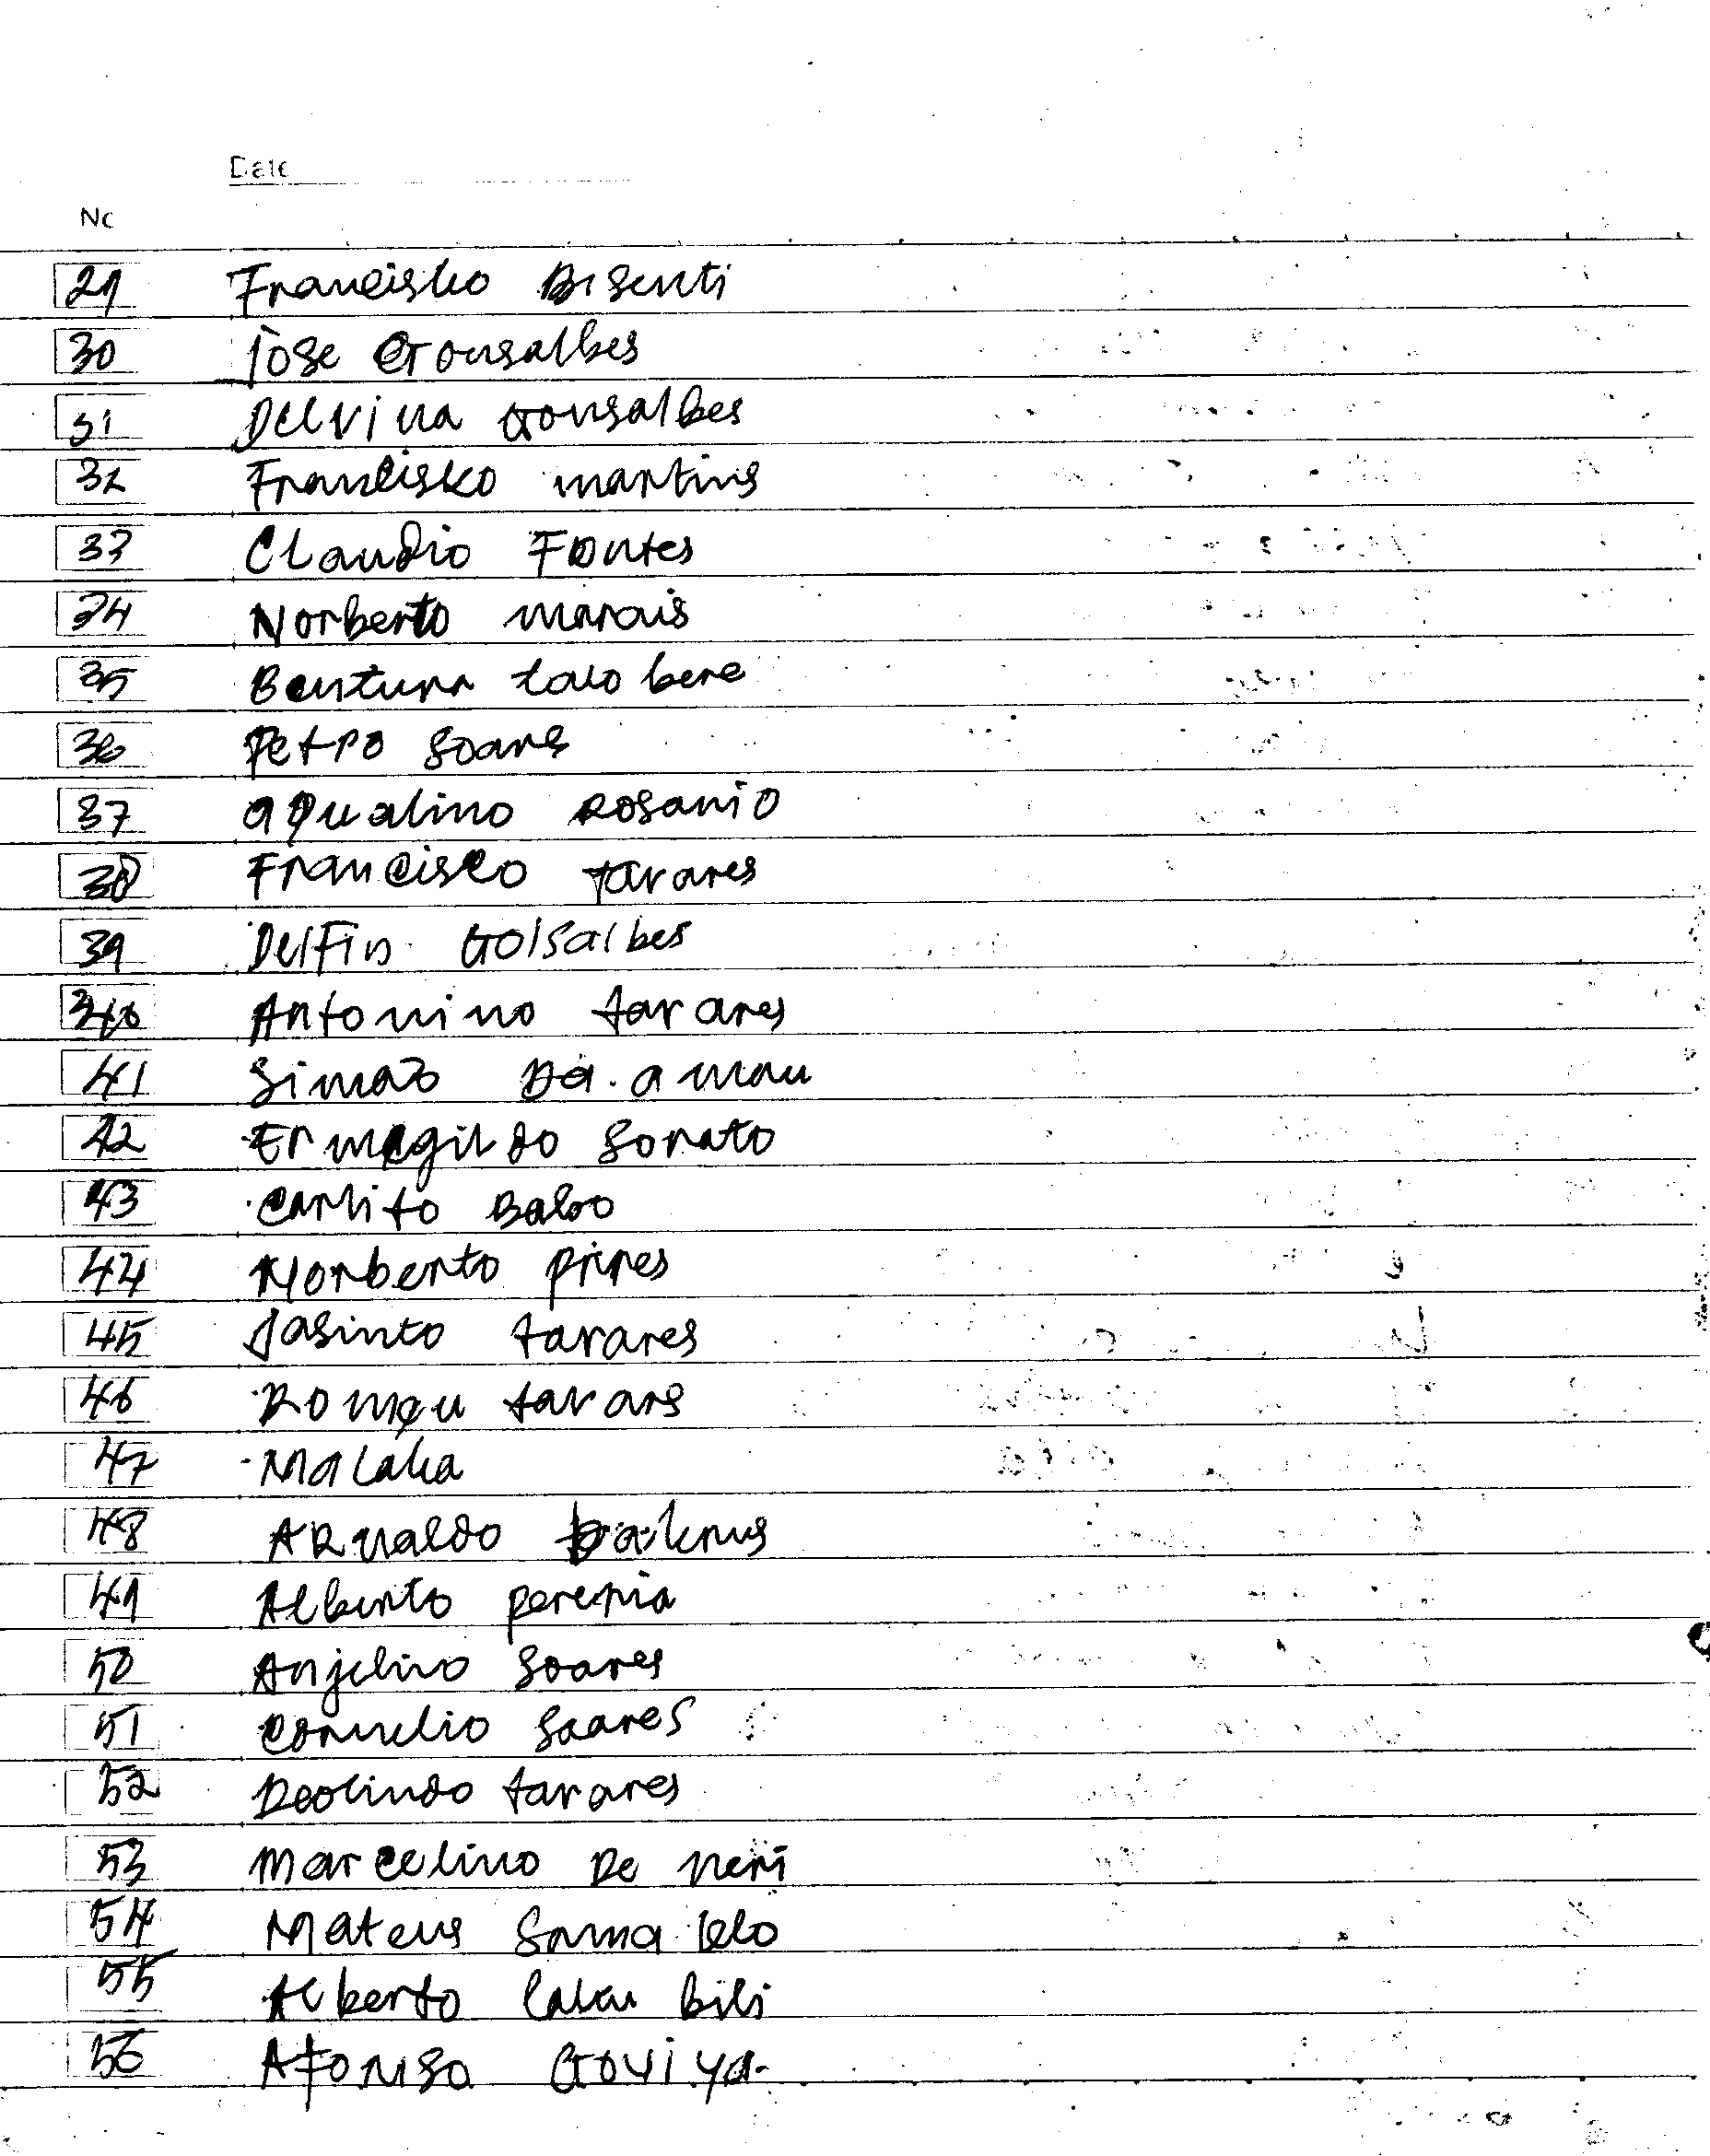 Date
No
29 Francisko Bisenti
30 Jose Gonsalbes
31 Delvina Gonsalbes
32 Francisko martins
33 Claudio Fontes
34 Norberto marais
35 Bentura talo bere
36 Petro Soares
37 aqualino Rosario
38 Francisco tavares
39 Delfin Golsalbes
40 Antonino tavares
41 Simao Da. a mau
42 Ermegildo Sorato
43 Carlito Babo
44 Norberto pires
45 Jasinto tavares
46 Romeu tavars
47 Malaka
48 ARnaldo
49 Alberto pereria
50 Anjelino Soares
51 Cornelio Soares
52 Deolindo tavares
53 Marcelino De neri
54 Mateus
55 Alberto bili
56 Afonso Goviya